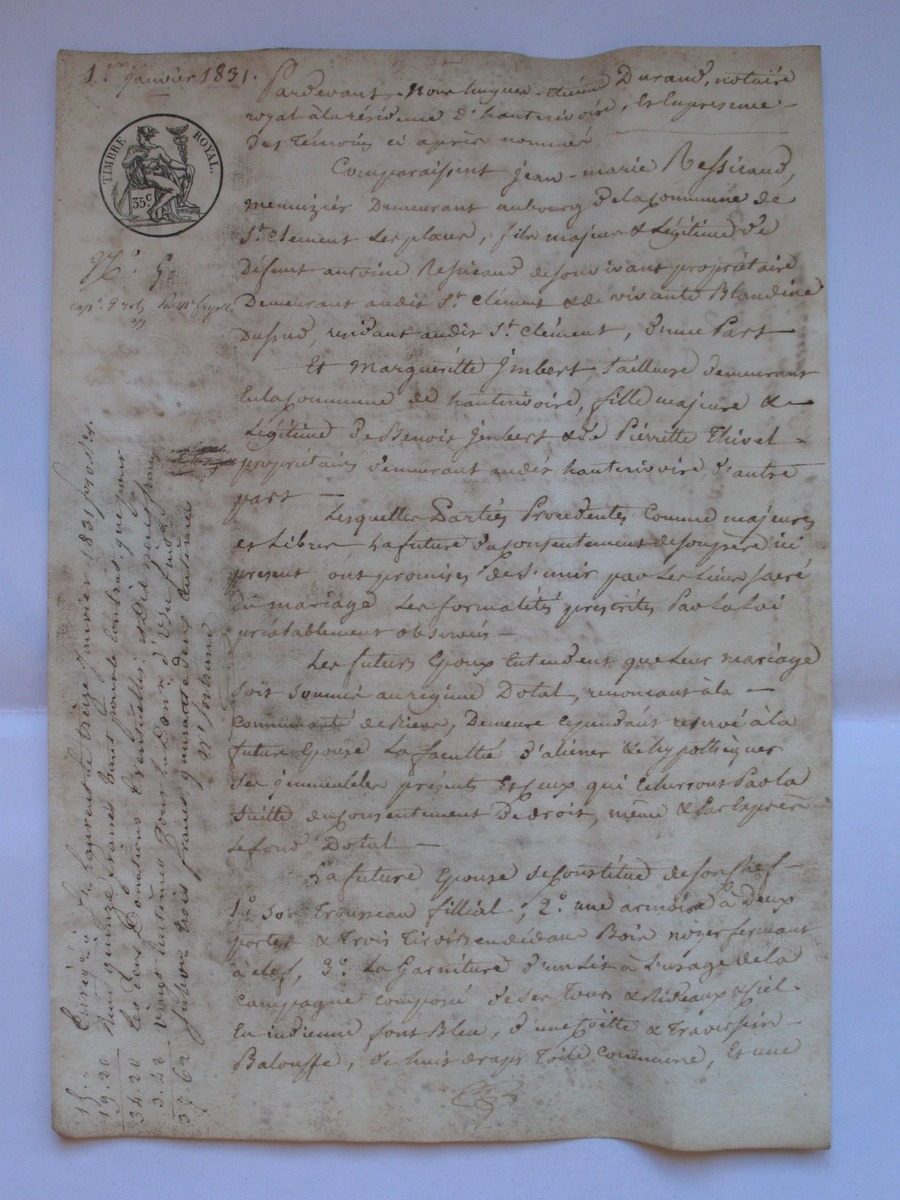 1.er janvier 1831.
Pardevant Nous hugues-étienne Durand, notaire
royal à la résidence d'hauterivoire, Et En présence
des témoins ci après nommés
Comparaissent jean-marie Ressicaud,
menuizier Demeurant au bourg De la Commune de
St. Clement Les places, fils majeur & Légitime De
Défunt antoine Ressicaud de son vivant propriétaire
Demeurant audit St. Clément & de vivante Blandine
résidant audit St. Clément, D'une Part
Et Margueritte Jmbert, tailleuse demeurant
En la Commune de hauterivoire, fille majeure &
Légitime De Benoit Jmbert & De Pierrette Thivel
propriétaires demeurant audit hauterivoire, d'autre
part
Lesquelles Parties Procedentes Comme majeures
et Libres La future du Consentement de son père ici
présent, ont promises de s'unir par Les Liens sacré
du mariage Les formalités prescrites Par La Loi
préalablement observées
Les futurs Epoux Entendent que Leur mariage
soit soumis au régime Dotal, renoncant à la
Communauté de Biens, Demeure Cependant reservé à la
future Epouse La faculté d'aliéner & d'hypothéquer
ses jmmeubles présents Et Ceux qui Echerront Par la
suitte du Consentement De droit, même & Par Exprès
Le fond Dotal
La future Epouse se Constitue de son Chef
1.° son trousseau fillial; 2.° une armoire à Deux
portes & trois tiroirs en dedans Bois noyer fermant
à clef, 3.° La Garniture D'un Lit à L'usage de la
Campagne Composé de ses tours & Rideaux & Ciel
En indienne font Bleu, d'une Coëtte & Traversin
Balouffe, De huit draps toile Commune, Et une
TIMBRE ROYAL
35c
N.° 5.
Enregistré à St. Laurent le treize janvier 1831
Reçu quinze francs pour
Les deux Donations Eventuelles; & Dix neuf francs
vingt centimes pour
trois francs quarante deux centimes
15 "
19. 20
34. 20
3. 42
37. 62